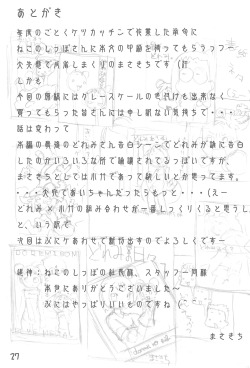 あとがき
毎度のごとくケツカッチンで夜業した挙句に
ねこのしっぽさんに本文の印刷を待ってもらうっつー
大失態で汚落しまくりのまさきちです(汗
しかも
今回の原稿にはグレースケールの色付けも出来なく
買ってもらった皆さんには申し訳ない気持ちで・・・
話は変わって
本編の最後のどれみさん告白シーンでどれみが誰に告白
したのかいろいろな所で論議されてるっぽいですが、
まさきちとしては小竹であって欲しいとか思ってます。
・・・次位であいちゃんだったらもっと・・・(えー
どれみ×小竹の組み合わせが一番しっくりくると思うし
と、いう訳で
今回はぷにケあわせで新刊出すのでよろしくですー
追伸:ねこのしっぽの社長、スタッフ一同
本当にありがとうございました~
ぷにはやっぱりいいものですね(
まさきち
27